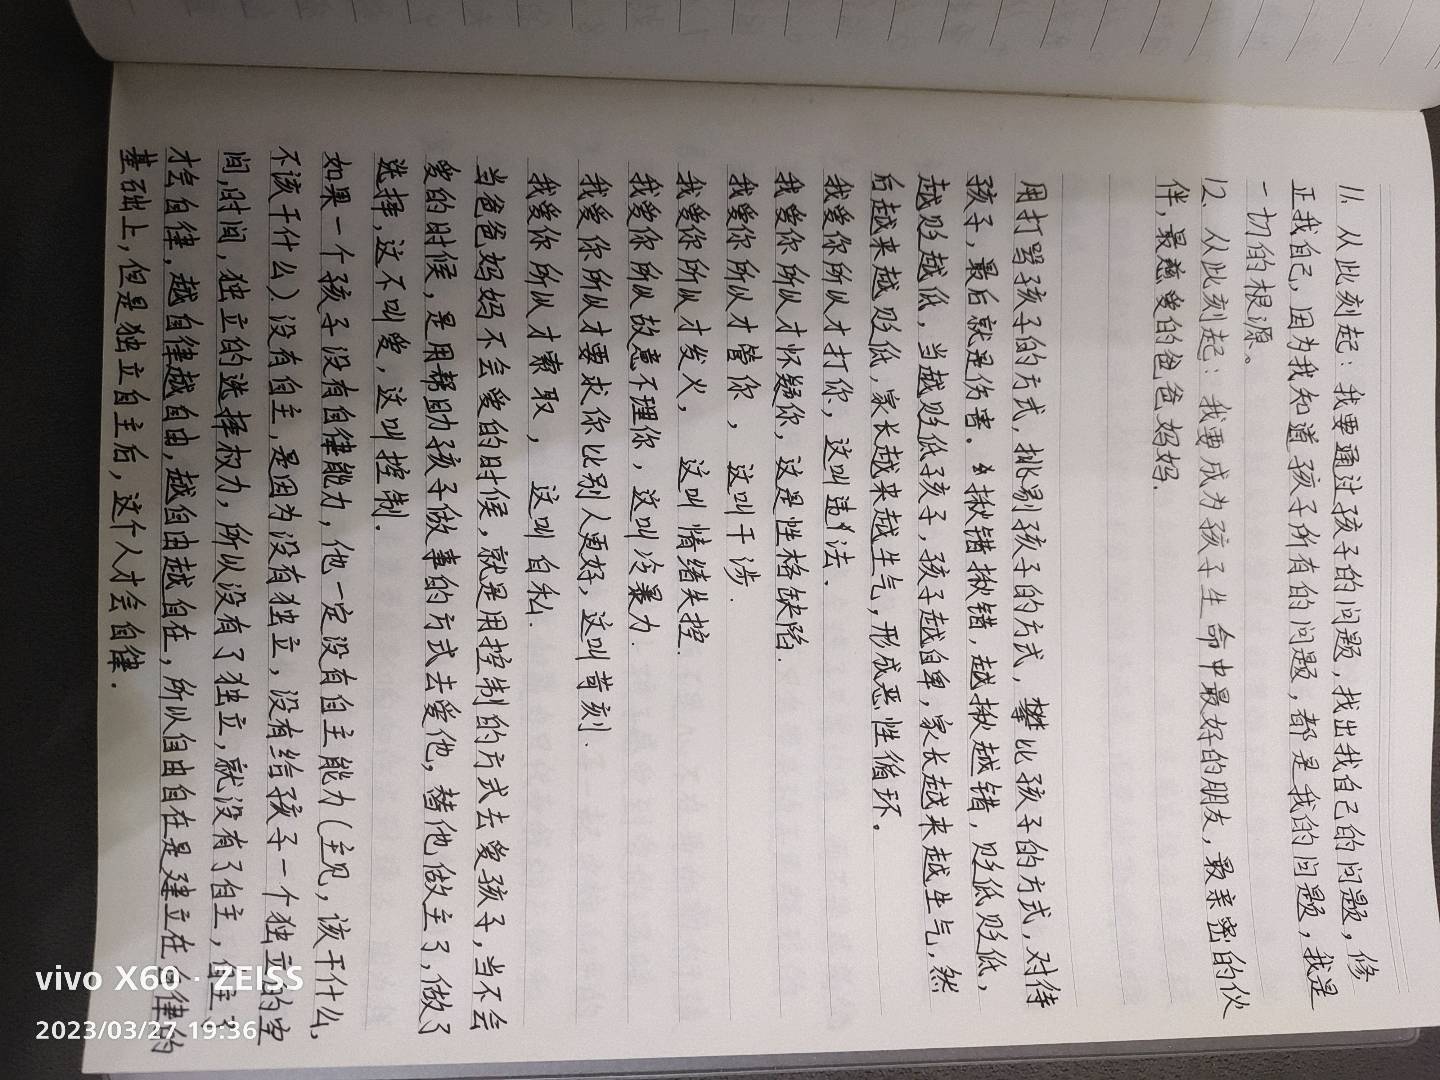 11. 从此刻起：我要通过孩子的问题，找出我自己的问题，修
正我自己，因为我知道孩子所有的问题，都是我的问题，我是
一切的根源。
12、从此刻起：我要成为孩子生命中最好的朋友，最亲密的伙
伴，最慈爱的爸爸妈妈.
用打骂孩子的方式，挑剔孩子的方式，攀比孩子的方式，对待
孩子，最后就是伤害。揪错揪错，越揪越错，贬低贬低，
越贬越低，当越贬低孩子，孩子越自卑，家长越来越生气，然
后越来越贬低，家长越来越生气，形成恶性循环。
我爱你所以才打你，这叫违法.
我爱你所以才怀疑你，这是性格缺陷.
我爱你所以才管你，这叫干涉.
我爱你所以才发火，这叫情绪失控.
我爱你所以故意不理你，这叫冷暴力.
我爱你所以才要求你比别人更好，这叫苛刻.
我爱你所以才索取，这叫自私.
当爸爸妈妈不会爱的时候，就是用控制的方式去爱孩子，当不会
爱的时候，是用帮助孩子做事的方式去爱他，替他做主了，做了
选择，这不叫爱，这叫控制.
如果一个孩子没有自律能力，他一定没有自主能力(主见，该干什么，
不该干什么).没有自主，是因为没有独立，没有给孩子一个独立的空
间，时间，独立的选择权力，所以没有了独立，就没有了自主，自主了
才会自律，越自律越自由，越自由越自在，所以自由自在是建立在自律的
基础上，但是独立自主后，这个人才会自律.
vivo X60 · ZEISS
2023/03/27 19:36